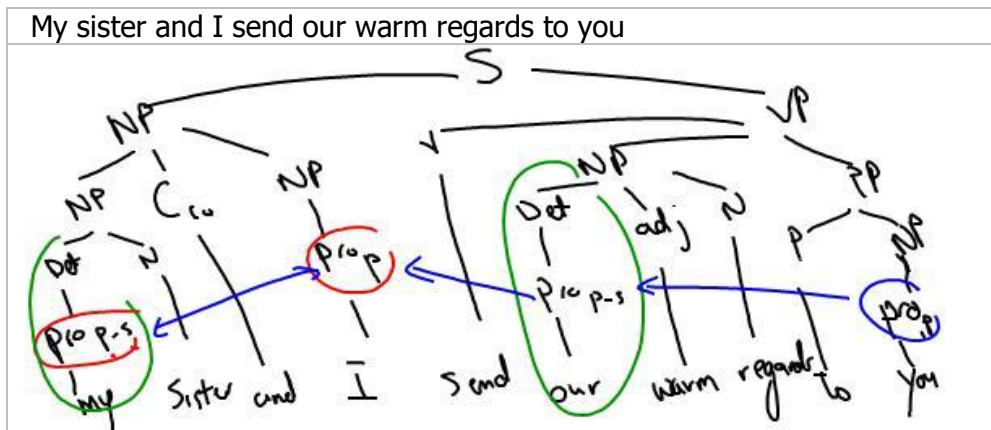 My sister and I send our warm regards to you
S
NP VP
V
NP C co NP NP PP
Det N pro p Det adj N P NP
pro p-s pro p-s pro p
my Sister and I Send our warm regards to you